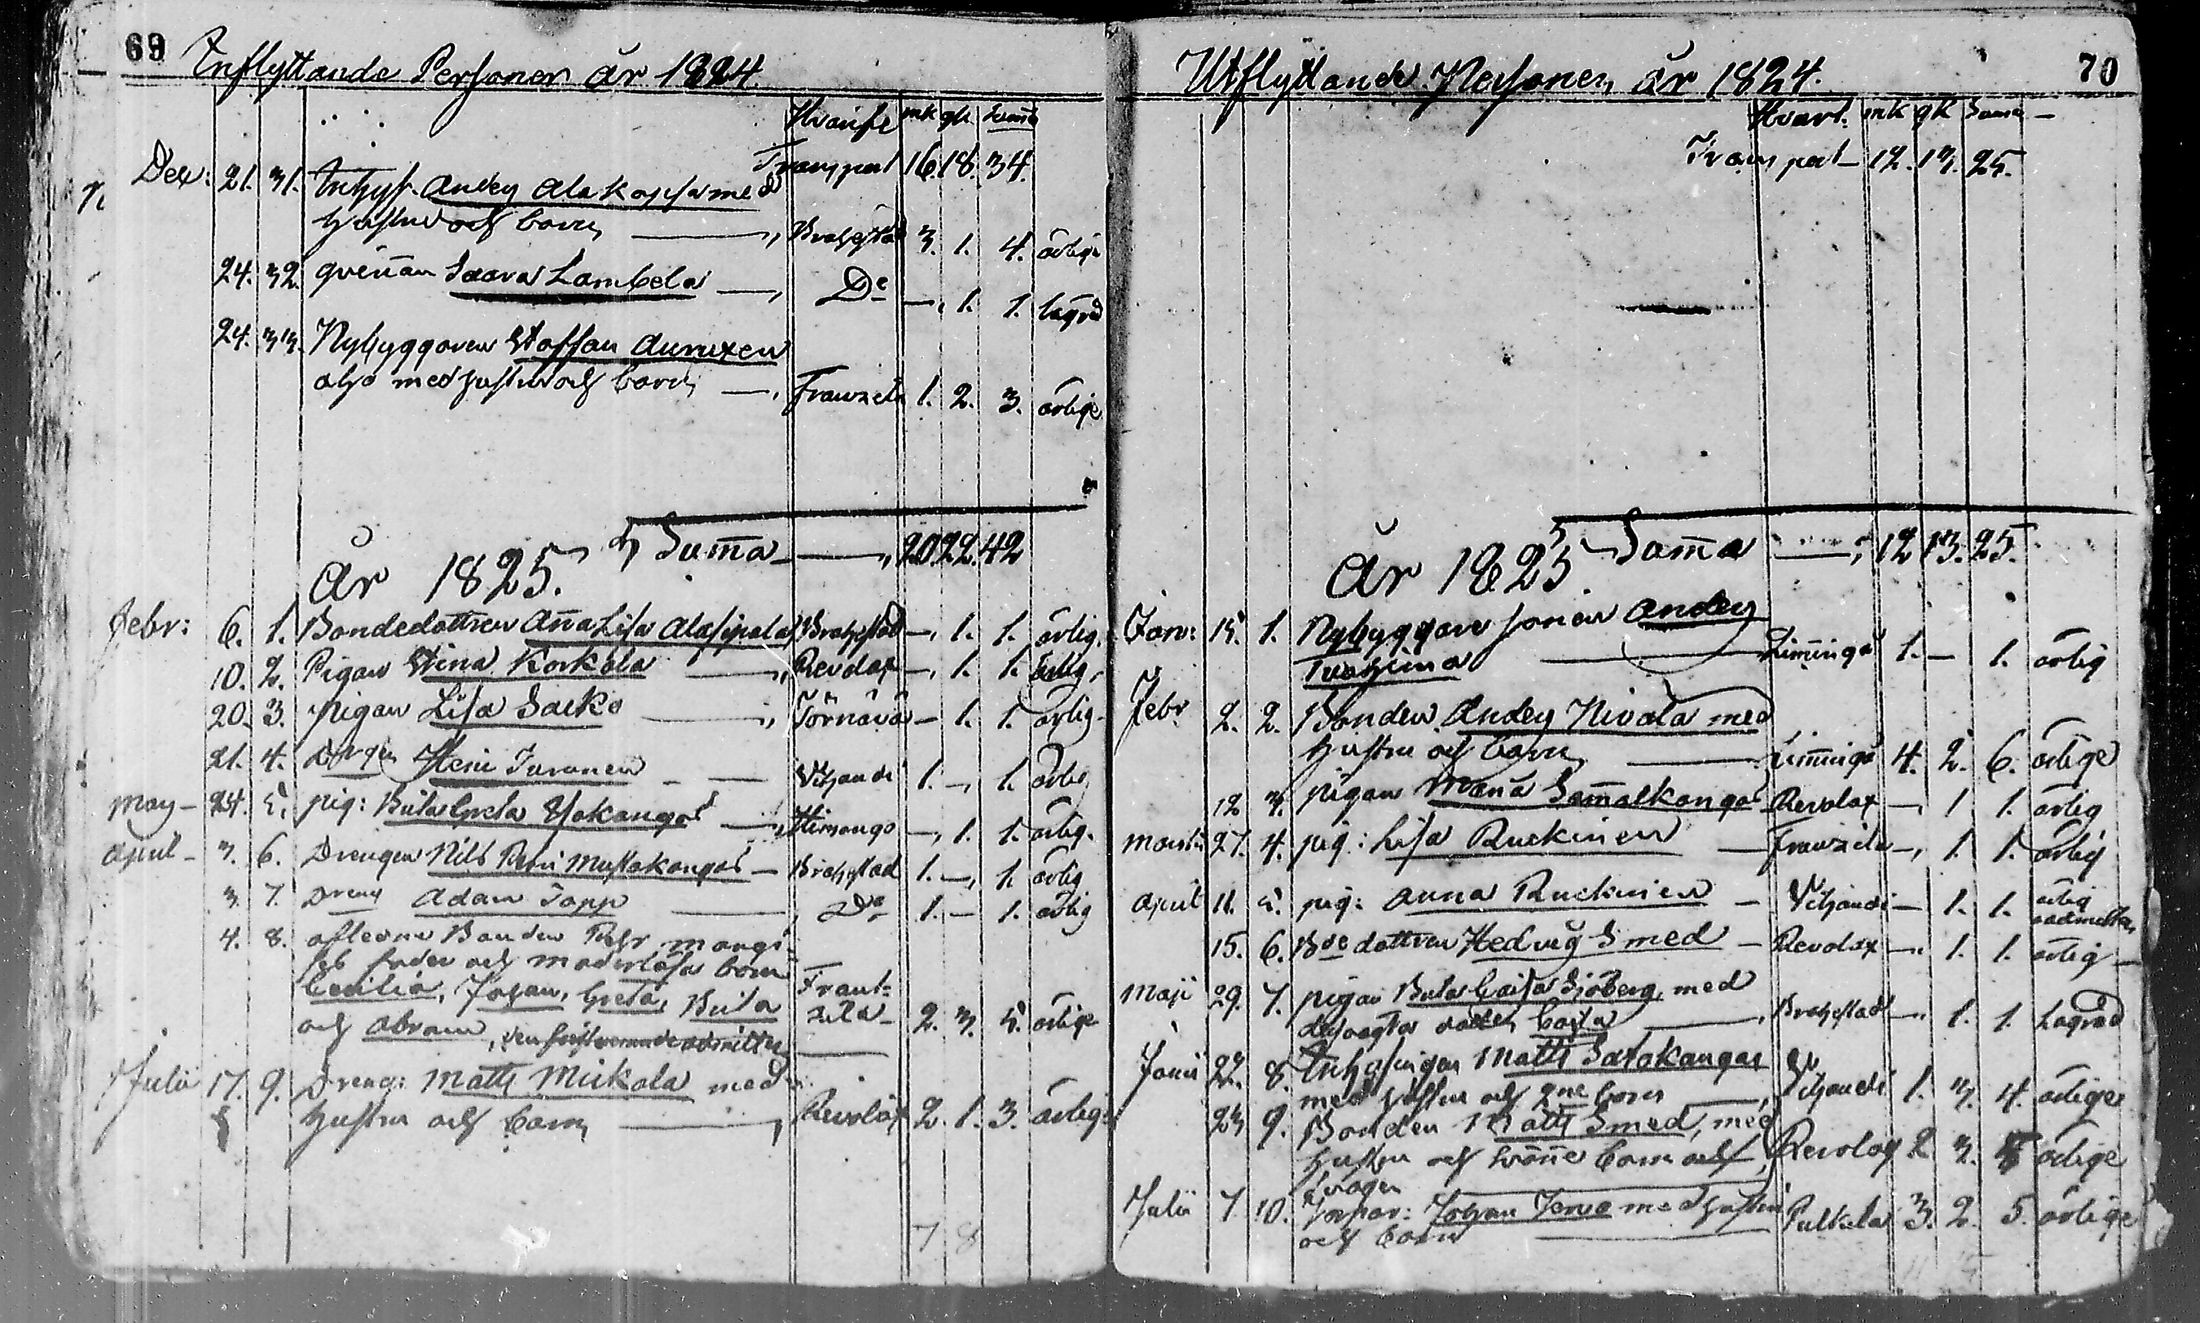 69 Inflyttande Personer år 1824.
Hvarifr mk qk Suma
Transport 16. 18. 34.
Dec: 21. 31. Inhys. Anders Alakopsa med
hustru och barn —, Brahestad 3. 1. 4. ärlige
24. 32. qvinnan Saara Lambela —, Do —, 1. 1. lagrd
24. 33. Nybyggaren Staffan Aunuxen
also med hustru och barn —, Frantzila 1. 2. 3. ärlige
Suma —, 20 22. 42
År 1825.
Febr: 6. 1. Bondedottren Aña Lisa Alasipola Brahestad —, 1. 1. ärlig.
10. 2. Pigan Stina Korkala —, Revolax —, 1. 1. ärlig,
20. 3. pigan Lisa Sarko —, Törnävä — 1. 1. ärlig.
21. 4. Dreng Henr Turonen — Vihandi 1. —, 1. ärlig
May — 24. 5. pig: Brita Greta Ylokangas —, Himango —, 1. 1. ärlig.
April — 3. 6. Drengen Nils Petri Mustakangas — Brahestad 1. —, 1. ärlig
3. 7. Dreng Adam Papp —, Do 1. — 1. ärlig
4. 8. afledne Bonden Pehr
fader och moderlösa barn
Cecilia, Johan, Greta, Brita Frant-
och Abram, den förstnemnde admitter zila — 2. 3. 5. ärlige
Julii 17. 9. Dreng: Matts Mickola med
hustru och barn —, Revolax 2. 1. 3. ärlige
7 8
Utflyttande Personer år 1824. 70
Hvart. mk qk Suma —
Transport — 12. 13. 25.
Suma —, 12 13. 25.
År 1825
Janu: 15. 1. Nybyggare sonen Anders
Tuohima — Limingo 1. — 1. ärlig
Febr 2. 2. Bonden Anders Nivala med
hustru och barn — Limingo 4. 2. 6. ärlige
12 3. pigan Maria Samalkangas Revolax —, 1 1. ärlig
Martii 27. 4. pig: Lisa Ruckinen — Frantzila —, 1. 1. ärlig
April 11. 5. pig: Anna Ruckinen — Vihandi — 1. 1. ärlig
admitter
15. 6. Bde dottren Hedvig Smed — Revolax —, 1. 1. ärlig —
Maji 29. 7. pigan Brita Caisa Sjöberg, med
oäkta dotter Cajsa —, Brahestad —, 1. 1. Lagrd
Junii 22. 8. Inhysingen Matts Savokangas
med hustru och 2ne barn —, Vihandi 1. 3. 4. ärlige
23 9. Bonden Matts Smed, med
hustru och barn och Revolax 2 3. 5 ärlige
Julii 7. 10. Torpar: Johan Jerve med hustru
och barn — Pulkila 3. 2. 5. ärlige